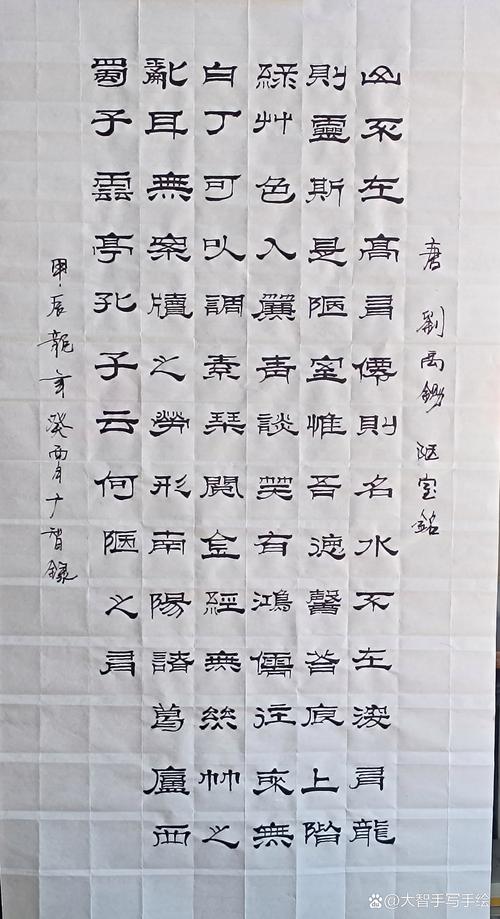 唐 劉禹錫 陋室銘
山不在高有僊則名水不在深有龍
則靈斯是陋室惟吾德馨苔痕上階
綠艸色入簾青談笑有鴻儒往來無
白丁可以調素琴閱金經無絲竹之
亂耳無案牘之勞形南陽諸葛廬西
蜀子雲亭孔子云何陋之有
甲辰龍年癸酉月大智錄
大智手写手绘